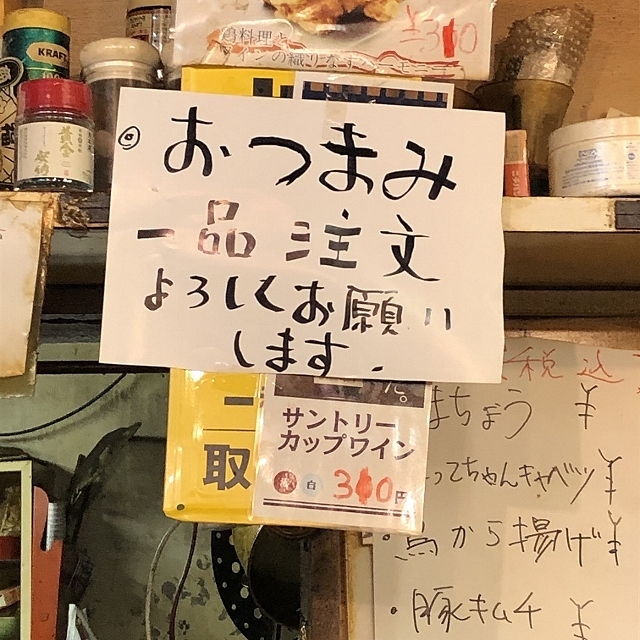 KRAFT
鶏料理と
ワインの織りなす
◎ おつまみ
一品 注文
よろしくお願い
します.
取
サントリー
カップワイン
白 310円
税込
まちょう ¥
ってちゃんキャベツ ¥
から揚げ ¥
・豚キムチ ¥